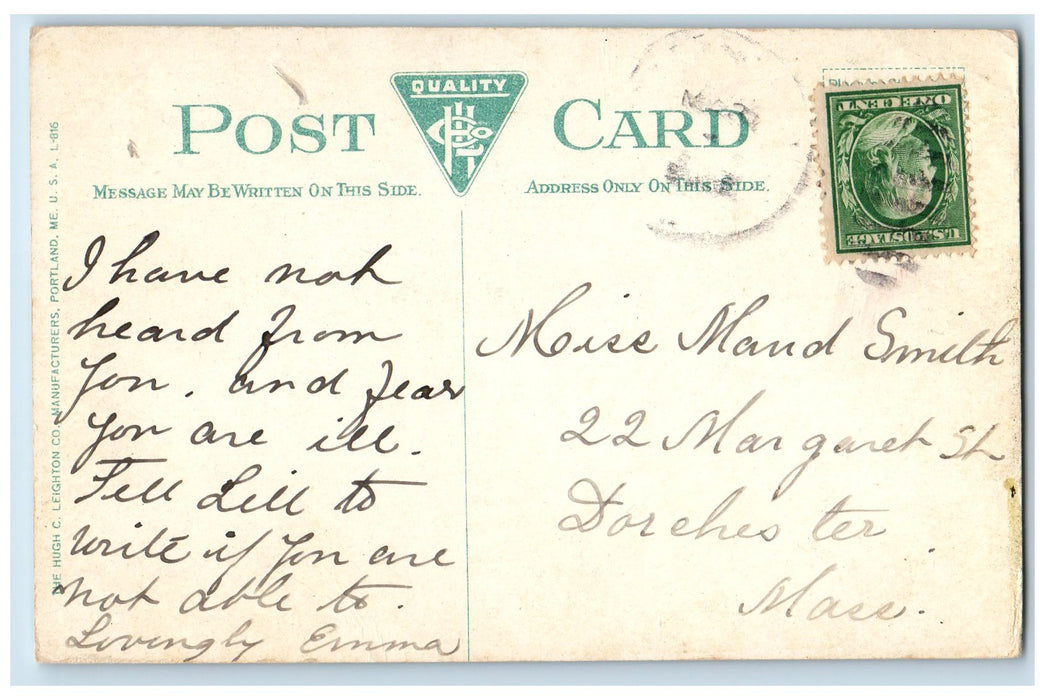 POST CARD
QUALITY
MESSAGE MAY BE WRITTEN ON THIS SIDE.
ADDRESS ONLY ON THIS SIDE.
THE HUGH C. LEIGHTON CO., MANUFACTURERS, PORTLAND, ME. U. S. A. L-816
ONE CENT
U.S. POSTAGE
I have not
heard from
you, and fear
you are ill.
Tell Lill to
write if you are
not able to.
Lovingly Emma
Miss Maud Smith
22 Margaret St
Dorchester,
Mass.